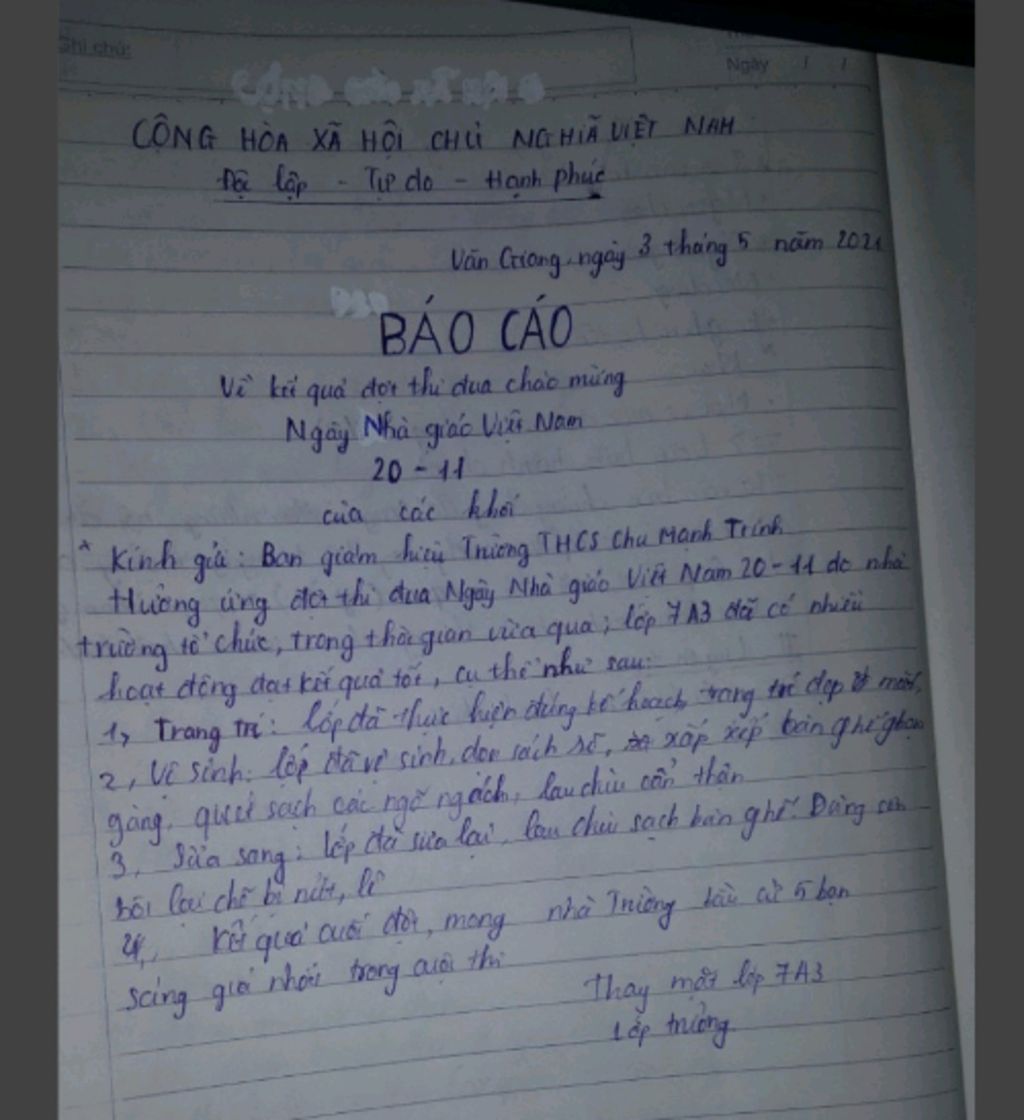 Ghi chú:
Ngày / /
CỘNG HÒA XÃ HỘI CHỦ NGHĨA VIỆT NAM
Độc lập - Tự do - Hạnh phúc
Văn Giang, ngày 3 tháng 5 năm 2021
BÁO CÁO
Về kết quả đợt thi đua chào mừng
Ngày Nhà giáo Việt Nam
20 - 11
của các khối
* Kính gửi: Ban giám hiệu Trường THCS Chu Mạnh Trinh
Hưởng ứng đợt thi đua Ngày Nhà giáo Việt Nam 20 - 11 do nhà
trường tổ chức, trong thời gian vừa qua; lớp 7A3 đã có nhiều
hoạt động đạt kết quả tốt, cụ thể như sau:
1, Trang trí: lớp đã thực hiện đúng kế hoạch, trang trí đẹp mắt,
2, Vệ sinh: lớp đã vệ sinh, dọn sách sổ, xắp xếp bàn ghế gọn
gàng, quét sạch các ngõ ngách, lau chùi cẩn thận
3, Sửa sang: lớp đã sửa lại, lau chùi sạch bàn ghế. Dùng
bôi lại chỗ bị nứt, lề
4, Kết quả cuối đợt, mong nhà Trường bầu cử 5 bạn
sáng giá nhất trong cuộc thi
Thay mặt lớp 7A3
Lớp trưởng